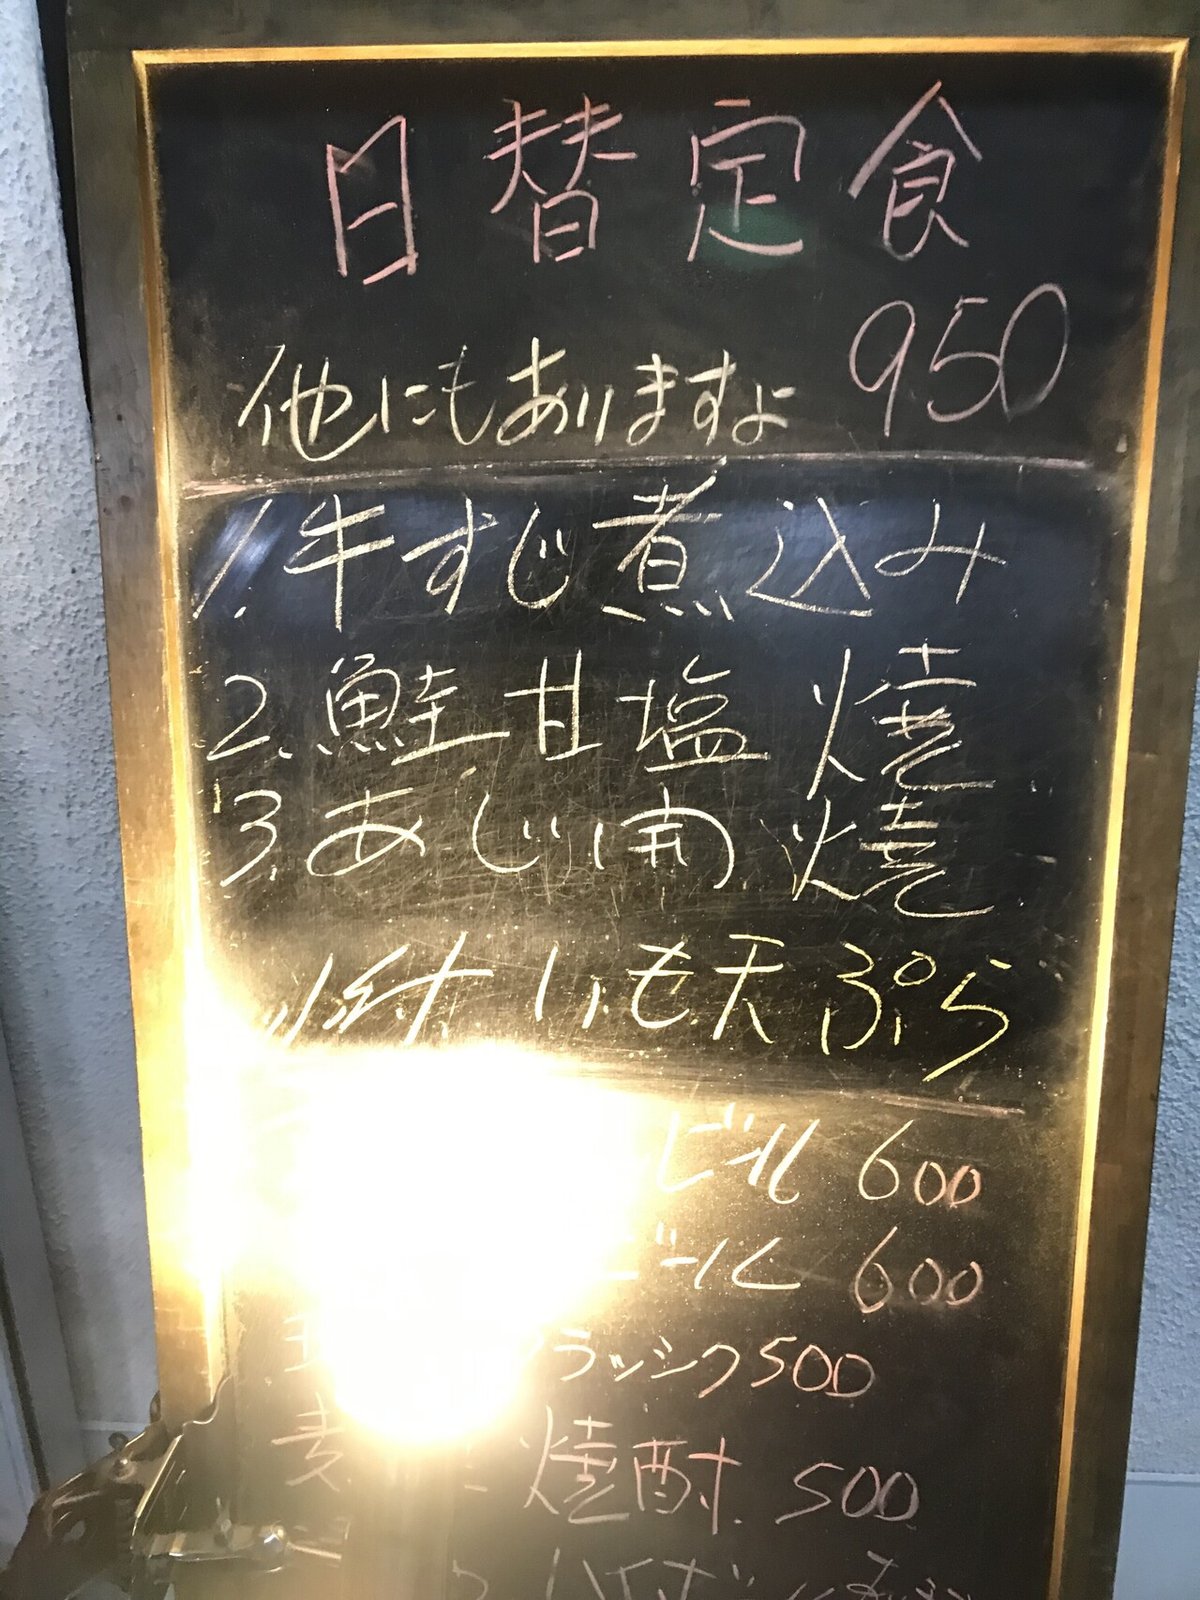 日替定食
950
他にもありますよ
1.牛すじ煮込み
2.鮭甘塩焼
3.あじ開焼
小付.いも天ぷら
ビール 600
ビール 600
ラッシック500
麦 焼酎 500